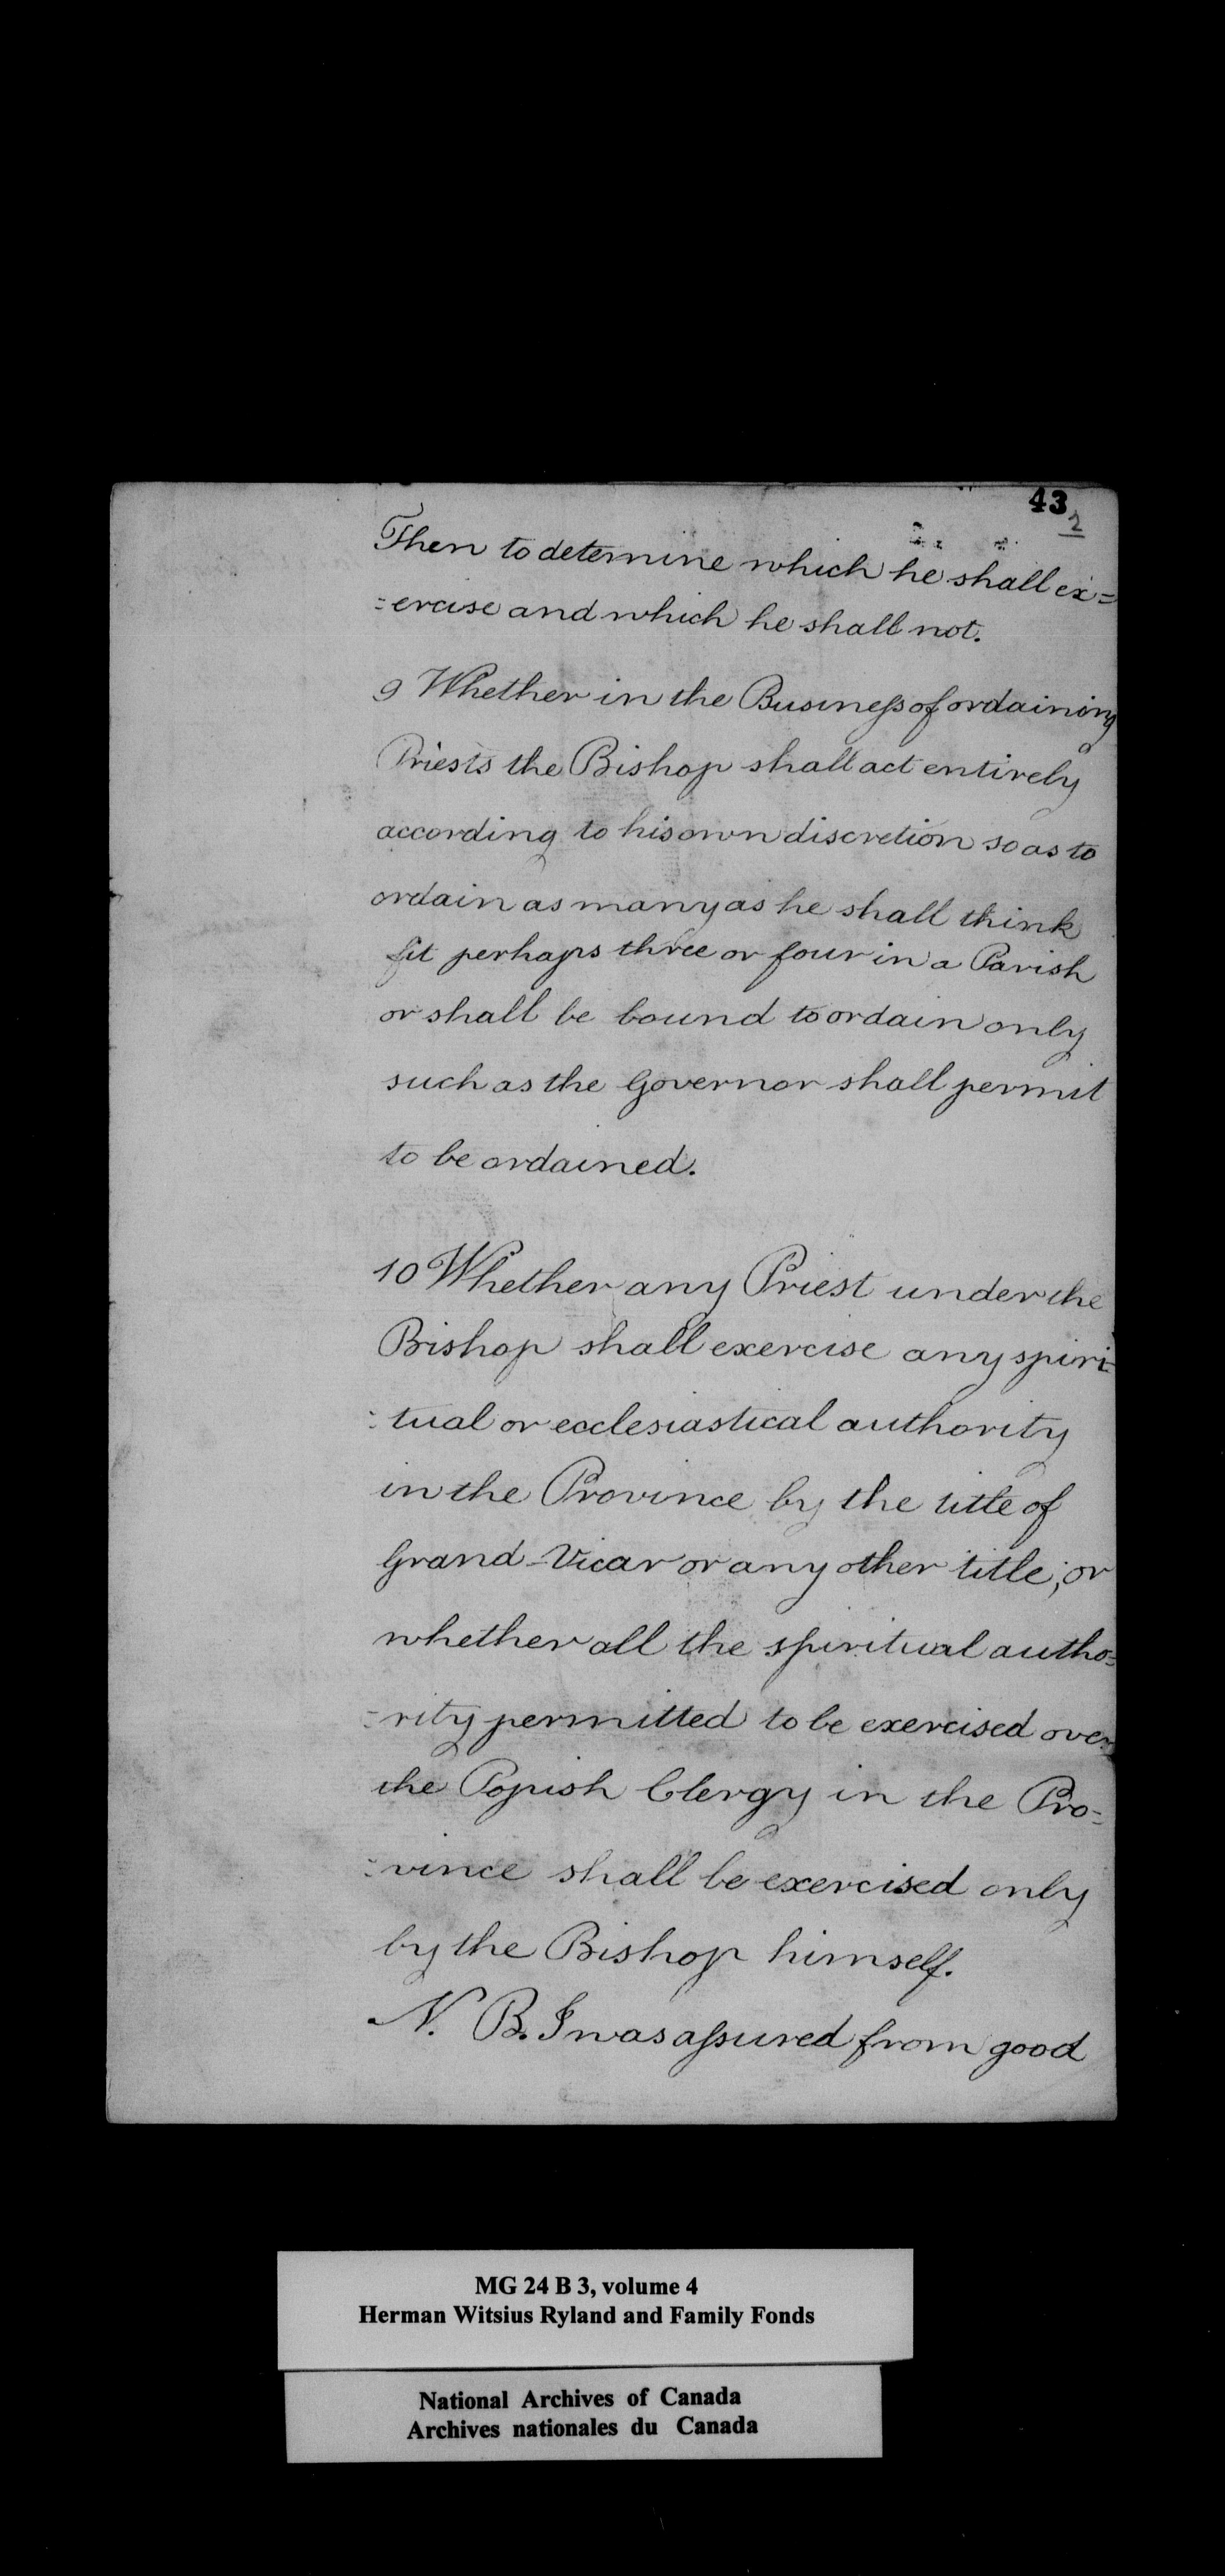 43
2
Then to determine which he shall ex=
=ercise and which he shall not.
9 Whether in the Busineſs of ordaining
Priests the Bishop shall act entirely
according to his own discretion so as to
ordain as many as he shall think
fit perhaps three or four in a Parish
or shall be bound to ordain only
such as the Governor shall permit
to be ordained.
10 Whether any Priest under the
Bishop shall exercise any spiri=
=tual or ecclesiastical authority
in the Province by the title of
Grand-Vicar or any other title; or
whether all the spiritual autho=
=rity permitted to be exercised over
the Popish Clergy in the Pro=
=vince shall be exercised only
by the Bishop himself.
N. B. I was aſsured from good
MG 24 B 3, volume 4
Herman Witsius Ryland and Family Fonds
National Archives of Canada
Archives nationales du Canada